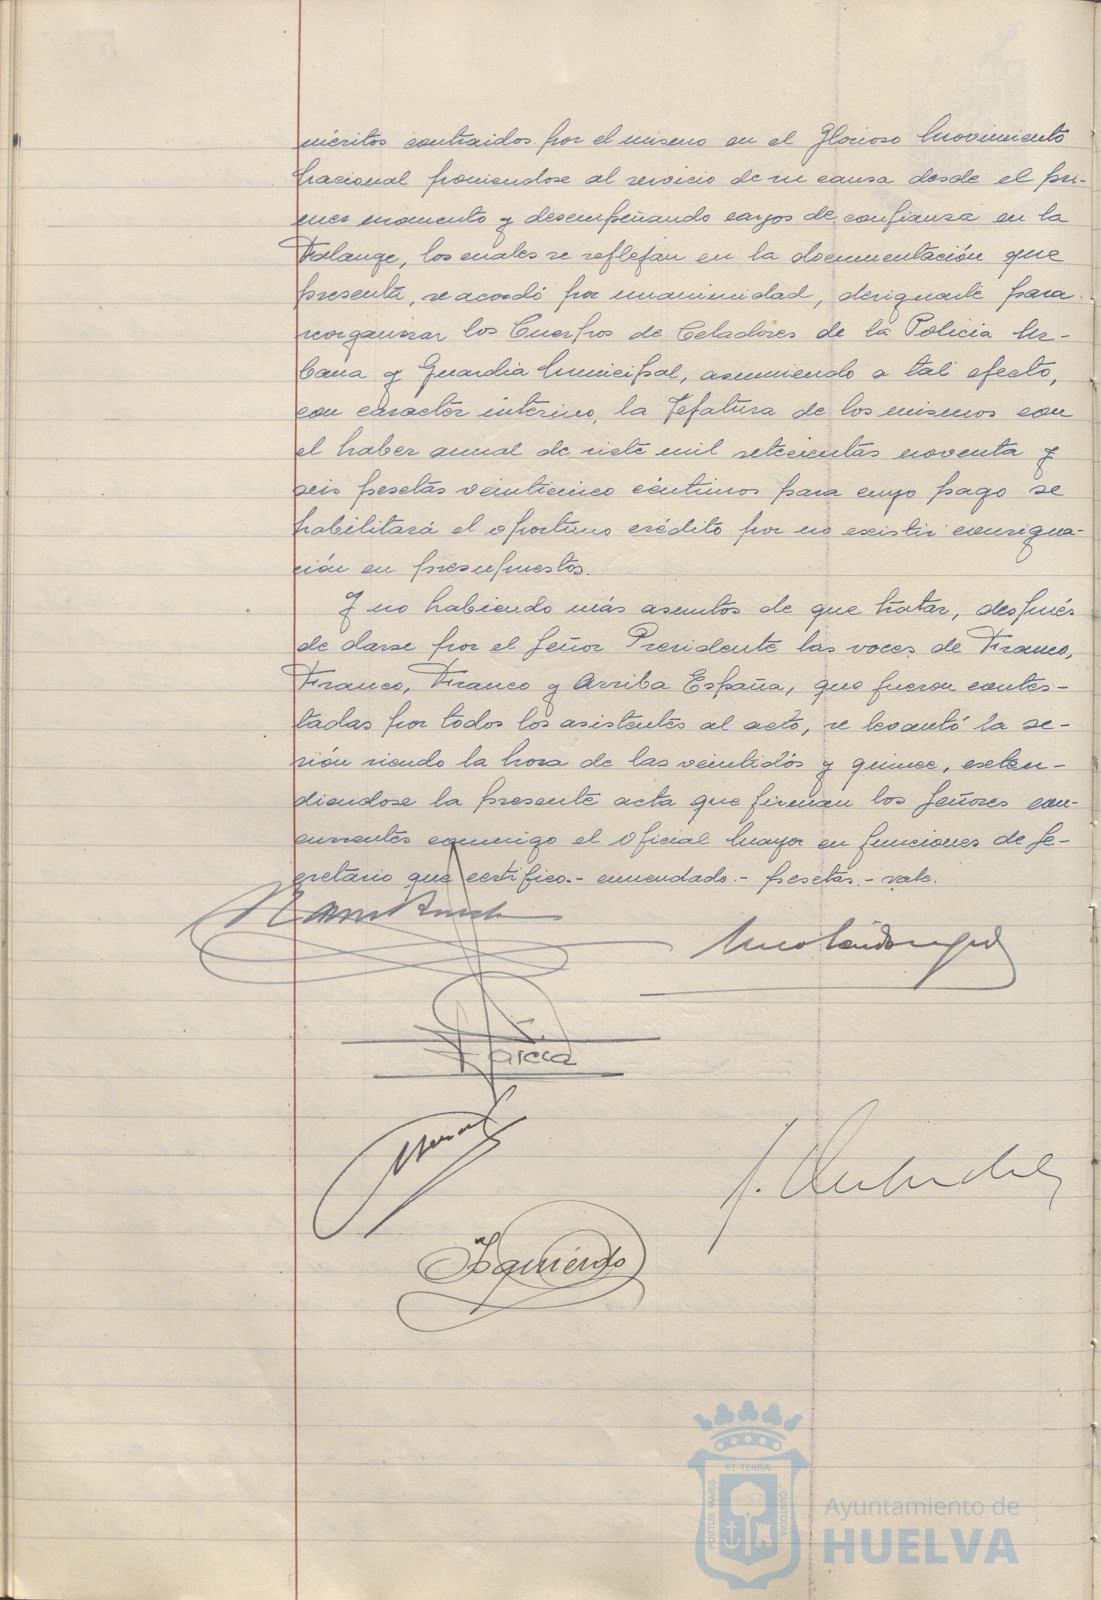 méritos contraidos por el mismo en el Glorioso Movimiento
Nacional poniendose al servicio de su causa desde el pri-
mer momento y desempeñando cargos de confianza en la
Falange, los cuales se reflejan en la documentación que
presenta, se acordó por unanimidad, designarle para
reorganizar los Cuerpos de Celadores de la Policia Ur-
bana y Guardia Municipal, asumiendo a tal efecto,
con caracter interino, la Jefatura de los mismos con
el haber anual de siete mil setecientas noventa y
seis pesetas veinticinco céntimos para cuyo pago se
habilitará el oportuno crédito por no existir consigna-
ción en presupuestos.
Y no habiendo más asuntos de que tratar, después
de darse por el Señor Presidente las voces de Franco,
Franco, Franco y Arriba España, que fueron contes-
tadas por todos los asistentes al acto, se levantó la se-
sión siendo la hora de las veintidós y quince, exten-
diendose la presente acta que firman los Señores con-
currentes conmigo el Oficial Mayor en funciones de Se-
cretario que certifico.- enmendado.- pesetas.- vale.
Garcia
Izquierdo
PORTUS MARIS
ET TERRÆ
CUSTODIA
Ayuntamiento de
HUELVA